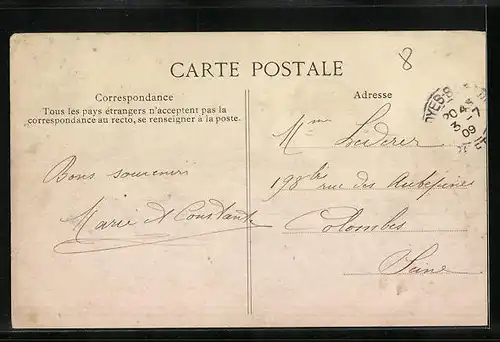 8
CARTE POSTALE
Correspondance
Tous les pays étrangers n'acceptent pas la
correspondance au recto, se renseigner à la poste.
Bons souvenirs
Marie et Constante
Adresse
Mme Lederer
198 bis rue des Aubépines
Colombes
Seine
20 45
3 -7
09